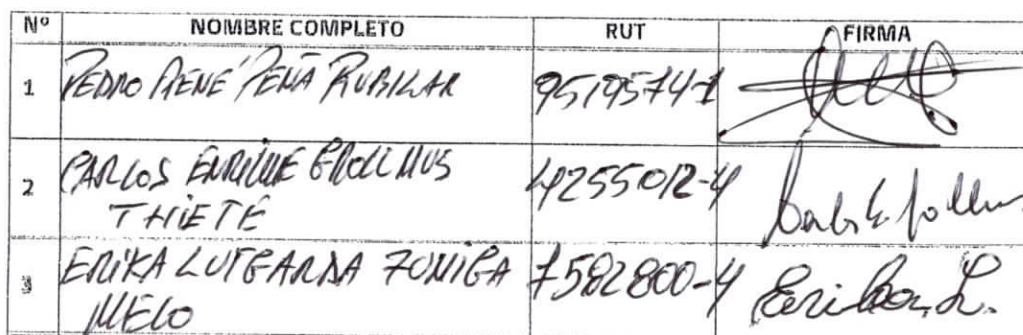 Nº NOMBRE COMPLETO RUT FIRMA
1 PEDRO RENÉ PEÑA RUBILAR 9519574-1
2 CARLOS ENRIQUE GROLLMUS 4255012-4
THIETE
3 ERIKA LUTGARDA ZUNIGA 7582800-4 Erika L.
MELO